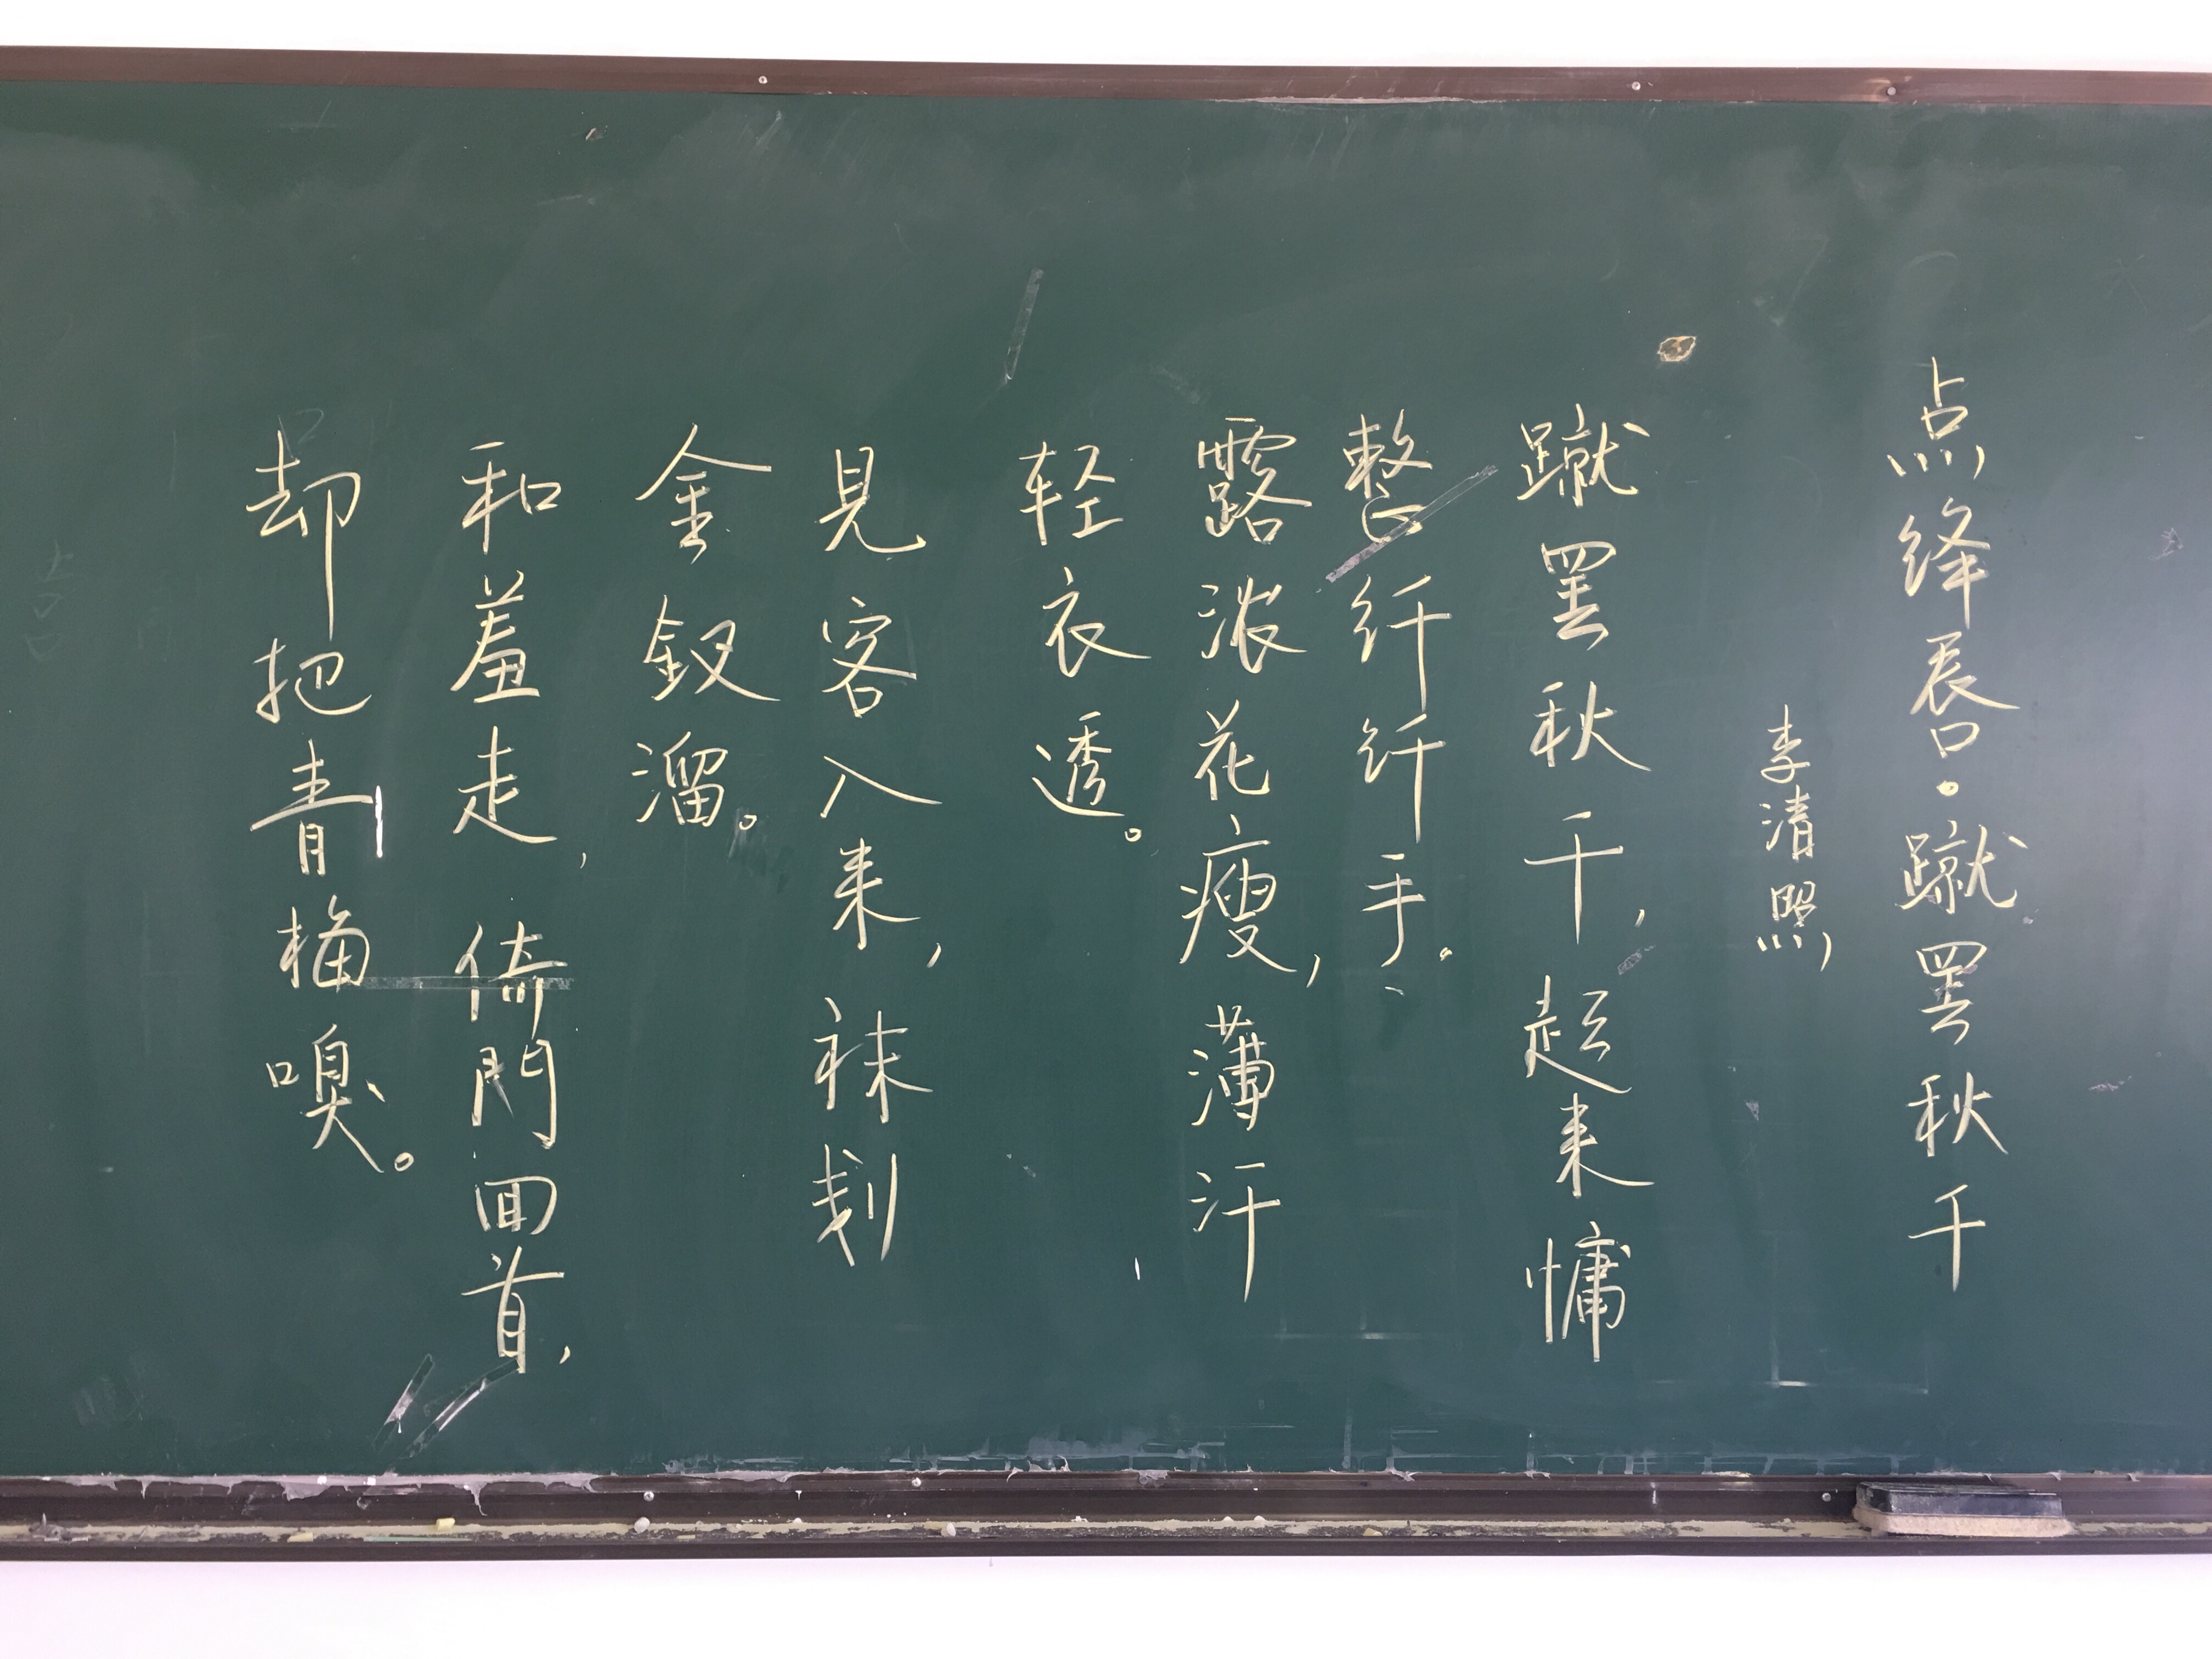 点绛唇·蹴罢秋千
李清照
蹴罢秋千,起来慵
整纤纤手。
露浓花瘦,薄汗
轻衣透。
見客入来,袜刬
金釵溜。
和羞走,倚門回首,
却把青梅嗅。